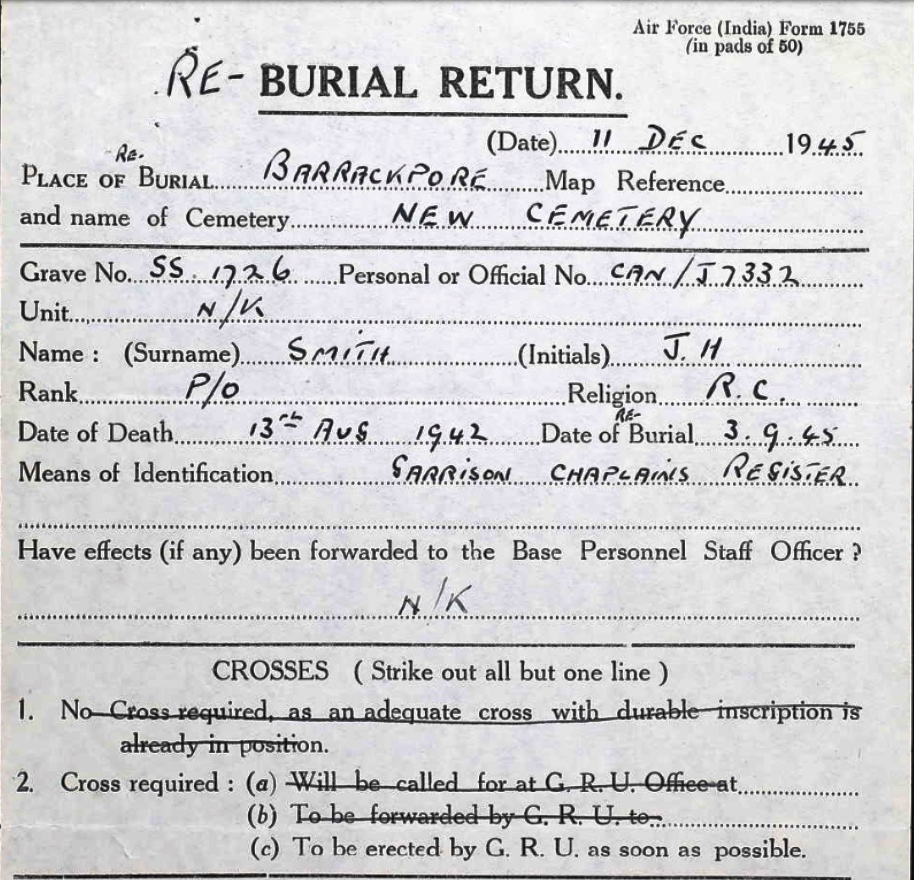 Air Force (India) Form 1755
(in pads of 50)
RE- BURIAL RETURN.
(Date) 11 DEC 1945
RE-
PLACE OF BURIAL BARRACKPORE Map Reference
and name of Cemetery NEW CEMETERY
Grave No. SS. 1726 Personal or Official No. CAN/J7332
Unit N/K
Name : (Surname) SMITH (Initials) J. H
Rank P/O Religion R.C.
RE-
Date of Death 13th AUG 1942 Date of Burial 3.9.45
Means of Identification GARRISON CHAPLAINS REGISTER
Have effects (if any) been forwarded to the Base Personnel Staff Officer ?
N/K
CROSSES ( Strike out all but one line )
1. No Cross required, as an adequate cross with durable inscription is
already in position.
2. Cross required : (a) Will be called for at G. R. U. Office at
(b) To be forwarded by G. R. U. to
(c) To be erected by G. R. U. as soon as possible.